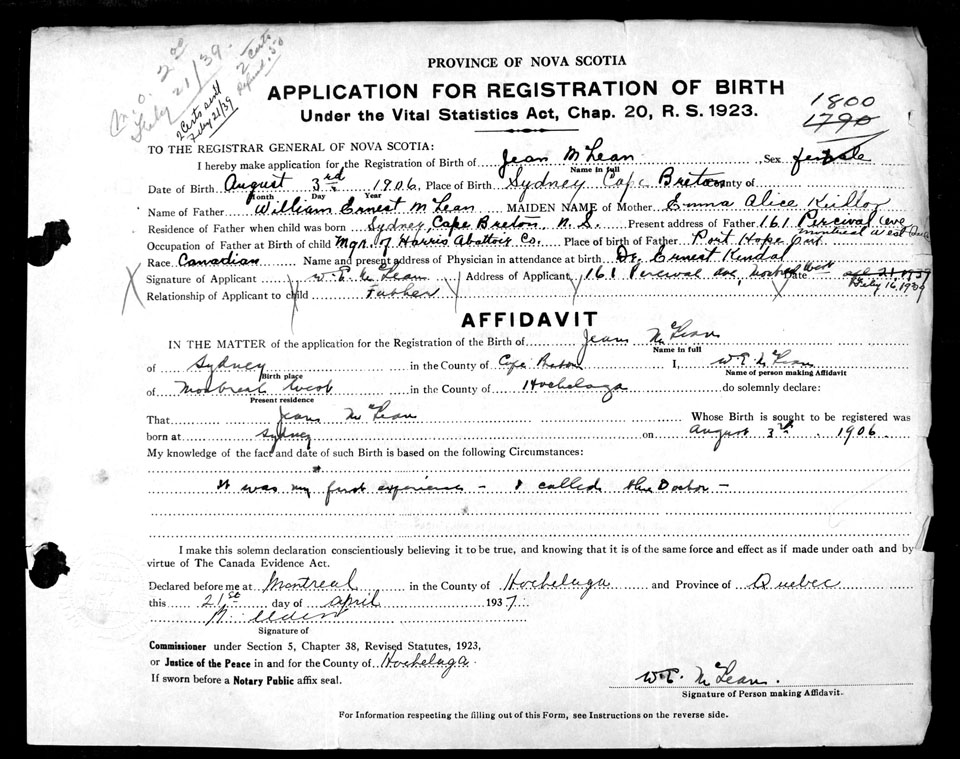 C.N.O. 2 00
Feby 21/39.
2 Certs
Refund .50
2 Certs sent
Feby 21/39
PROVINCE OF NOVA SCOTIA
APPLICATION FOR REGISTRATION OF BIRTH
Under the Vital Statistics Act, Chap. 20, R. S. 1923.
1800
1790
TO THE REGISTRAR GENERAL OF NOVA SCOTIA:
I hereby make application for the Registration of Birth of Jean McLean Sex female
Name in full
Date of Birth August 3rd 1906, Place of Birth Sydney Cape Breton County of
Month Day Year
Name of Father William Ernest McLean MAIDEN NAME of Mother Emma Alice
Residence of Father when child was born Sydney, Cape Breton N. S. Present address of Father 161 Percival Ave
Montreal West Que
Occupation of Father at Birth of child Mgr. of Harris Abattoir Co. Place of birth of Father Port Hope Ont.
Race Canadian Name and present address of Physician in attendance at birth Dr. Ernest Kendal
Signature of Applicant W. E. McLean Address of Applicant 161 Percival Ave, West Date
Feby 16, 1939
Relationship of Applicant to child Father
AFFIDAVIT
IN THE MATTER of the application for the Registration of the Birth of Jean McLean
Name in full
of Sydney in the County of Cape Breton I, W. E. McLean
Birth place Name of person making Affidavit
of Montreal West in the County of Hochelaga do solemnly declare:
Present residence
That Jean McLean Whose Birth is sought to be registered was
born at Sydney on August 3rd. 1906.
My knowledge of the fact and date of such Birth is based on the following Circumstances:
It was my first experience - I called the Doctor -
I make this solemn declaration conscientiously believing it to be true, and knowing that it is of the same force and effect as if made under oath and by
virtue of The Canada Evidence Act.
Declared before me at Montreal in the County of Hochelaga and Province of Quebec
this 21st day of April 1937.
Signature of
Commissioner under Section 5, Chapter 38, Revised Statutes, 1923,
or Justice of the Peace in and for the County of Hochelaga.
If sworn before a Notary Public affix seal.
W. E. McLean.
Signature of Person making Affidavit.
For Information respecting the filling out of this Form, see Instructions on the reverse side.